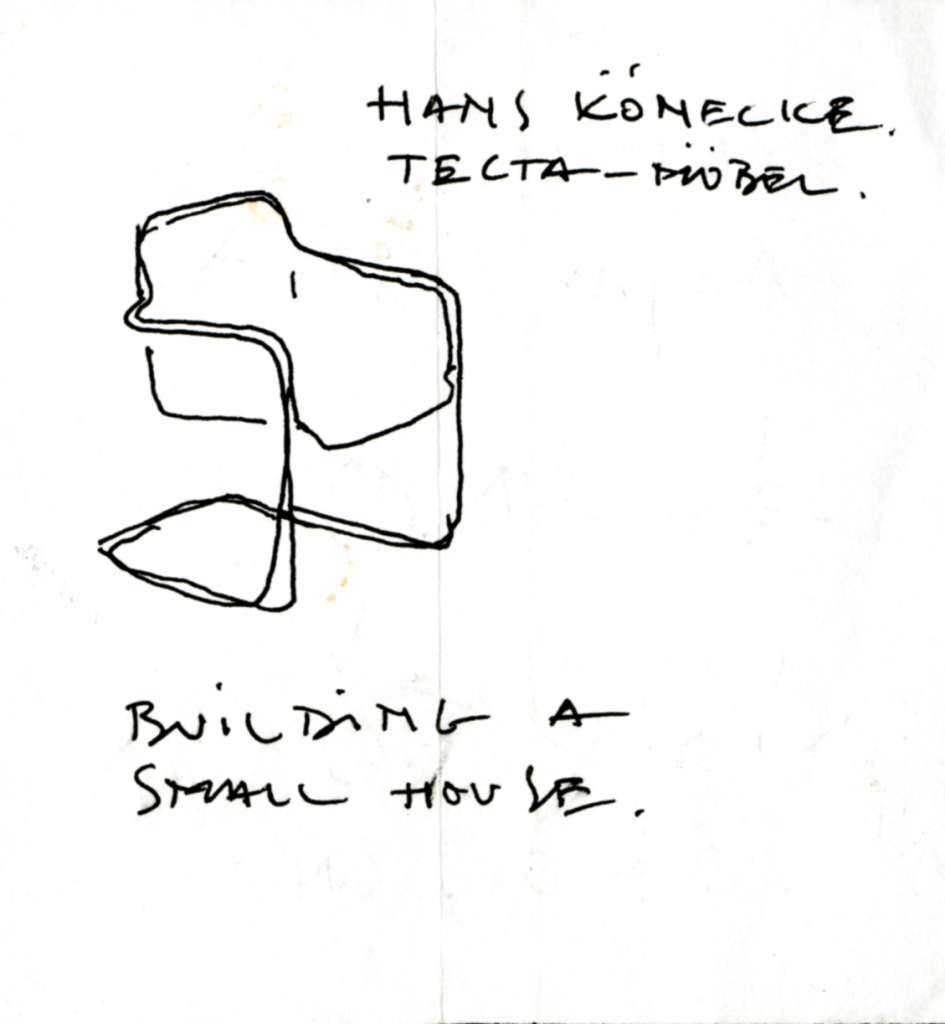 HANS KÖNECKE.
TECTA-MÖBEL.
BUILDING A
SMALL HOUSE.